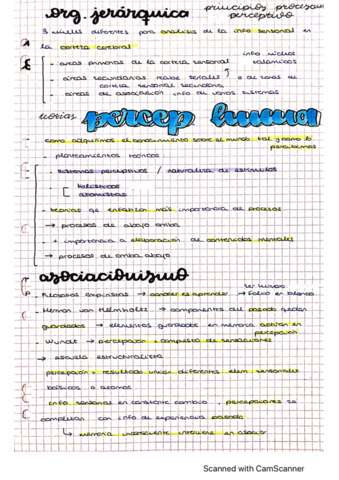 org. jerárquica
principios procesam
perceptivo
3 niveles diferentes para analisis de la info sensorial en
la corteza cerebral
info núcleos
- areas primarias de la corteza sensorial talamicos
- areas secundarias recibe señales o de zonas de
corteza sensorial secundaria
- areas de asociacion info de varios sistemas
teorías percep humana
- como adquirimos el conocimiento sobre el mundo tal y como lo
percibimos
- planteamientos teóricos
- sistemas perceptivos / naturaleza de estimulos
holisticos
atomistas
- teorias q enfatizan más importancia de procesos
→ procesos de abajo arriba
+ importancia a elaboración de contenidos mentales
→ procesos de arriba abajo
asociacionismo
ser humano
- Filosofos empiristas → conocer es aprender → folio en blanco
- Herman von Helmholtz → componentes del pasado quedan
guardados → elementos guardados en memoria activan en
percepcion
- Wundt → percepcion compuesta de sensaciones
→ escuela estructuralista
percepcion = resultado union diferentes elem sensoriales
basicos o atomos
info sensorial en constante cambio, percepciones se
completan con info de experiencia pasada
↳ memoria inconsciente interviene en asocio
Scanned with CamScanner